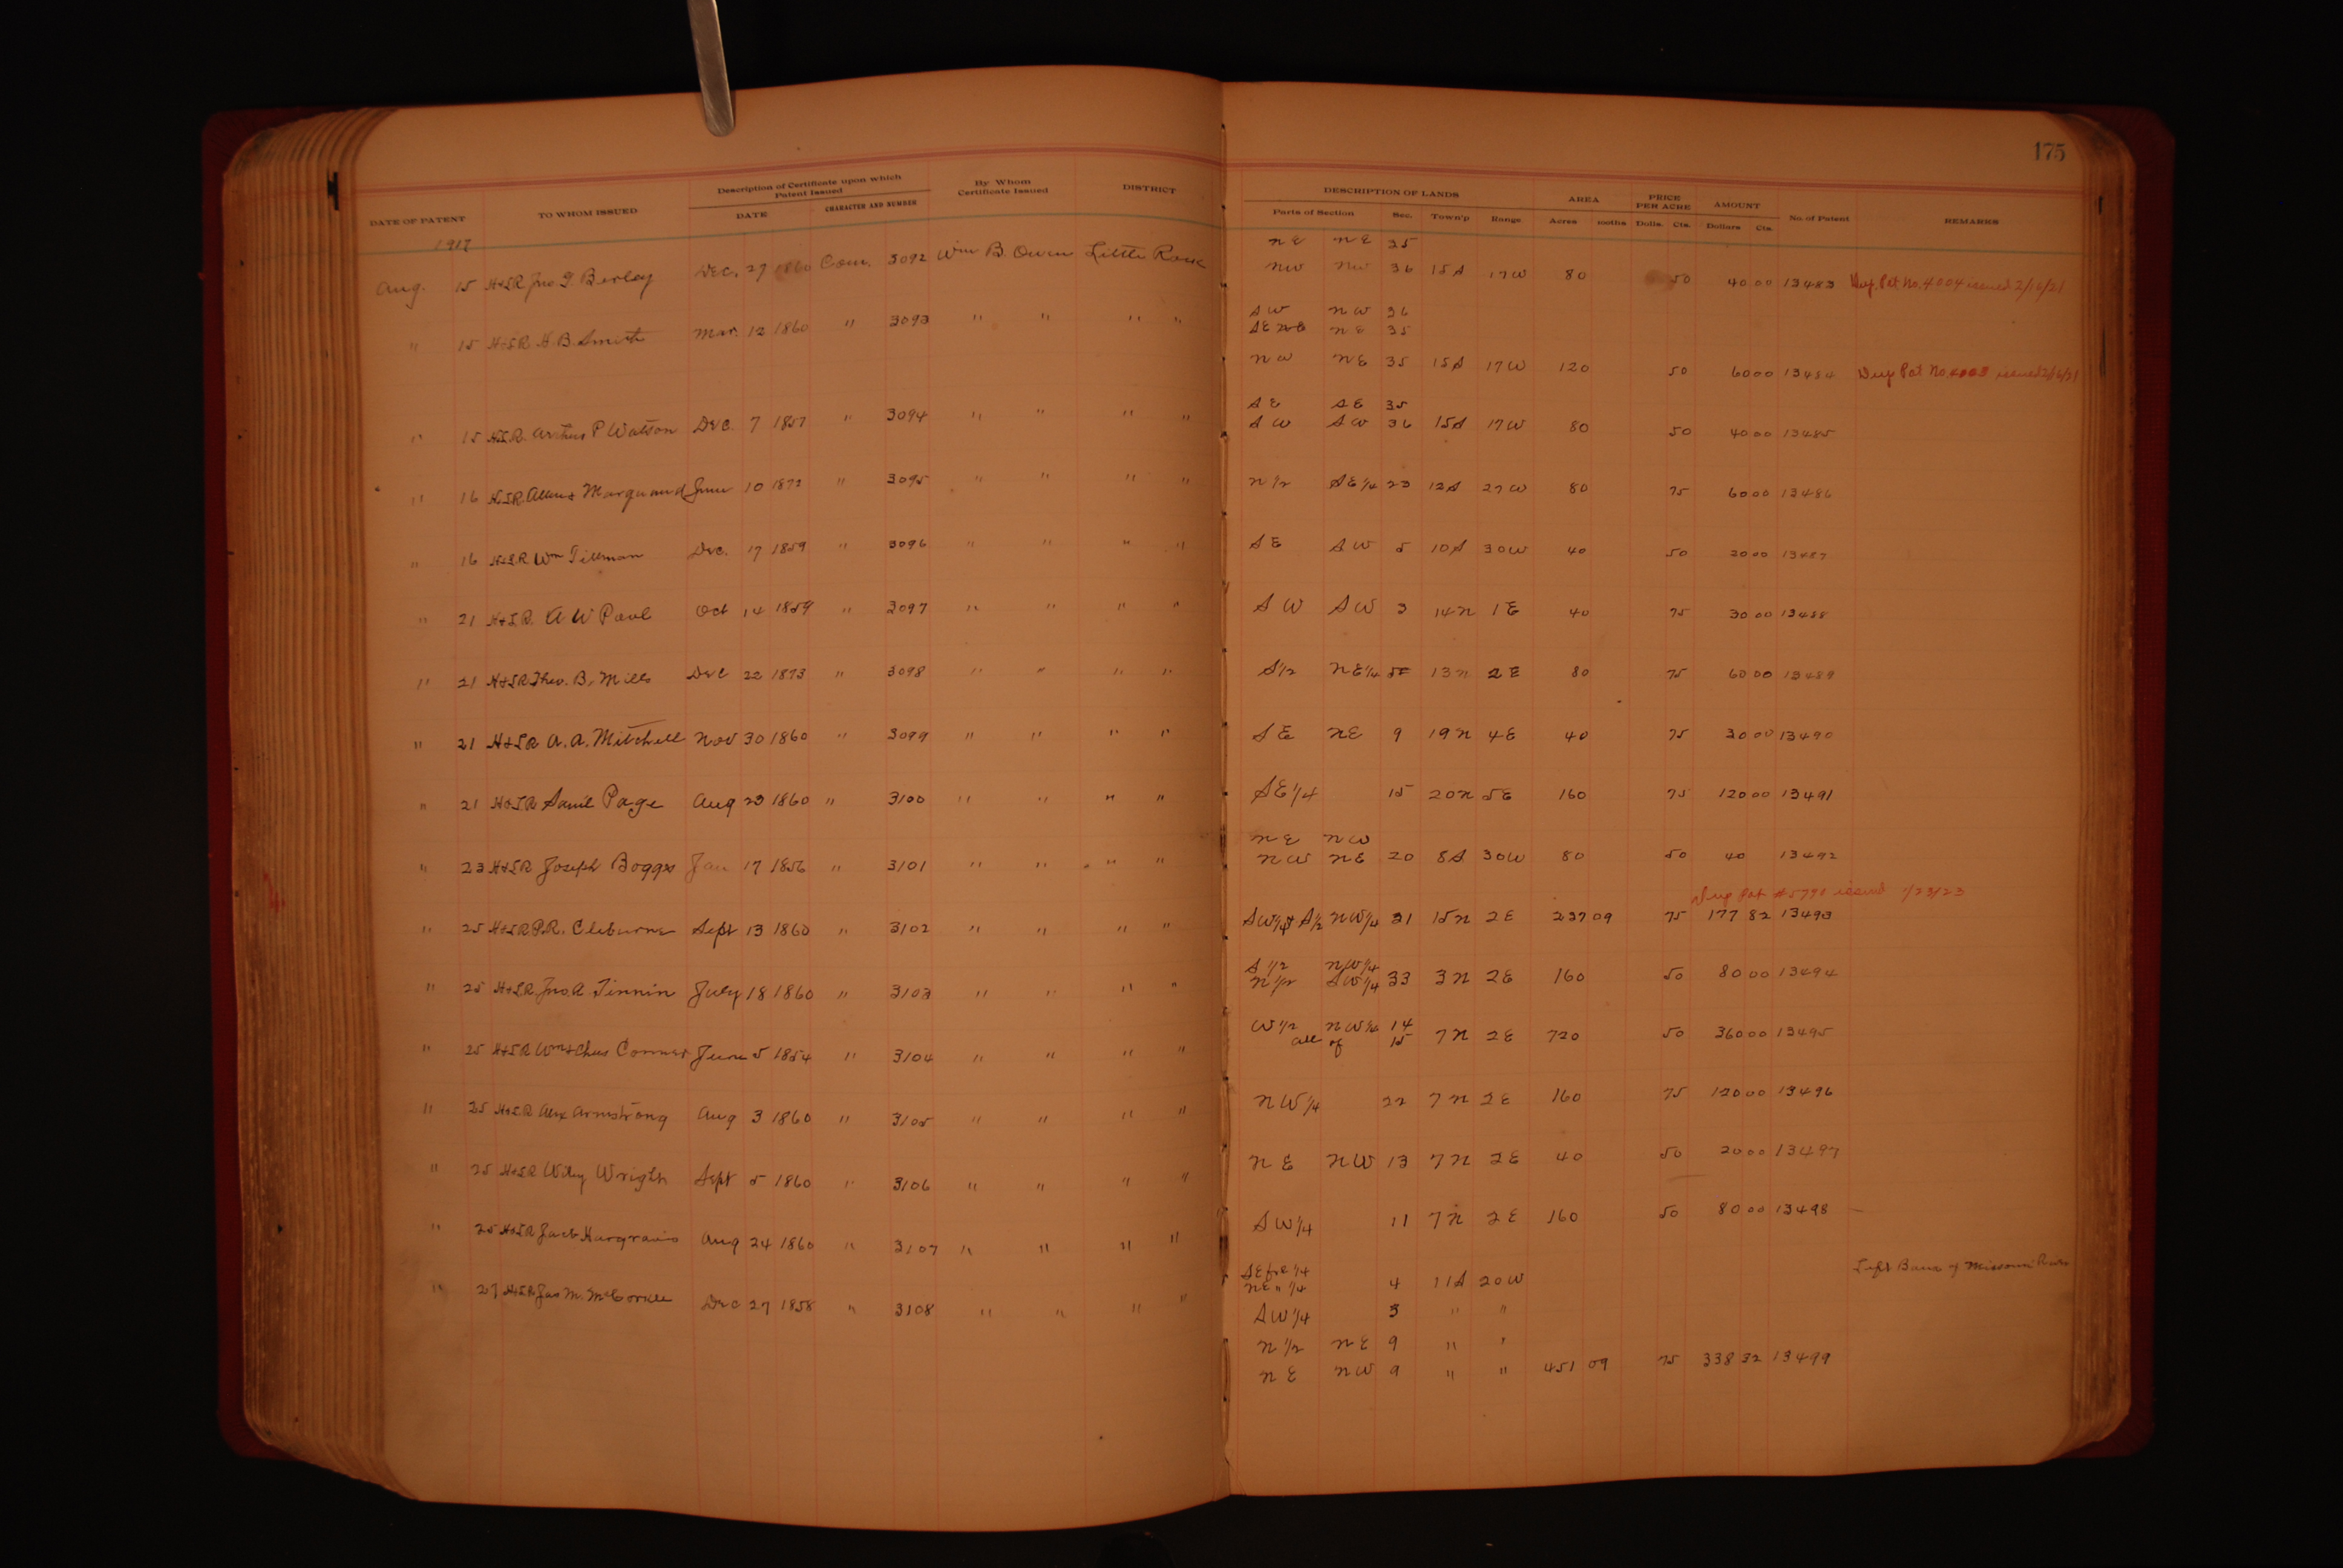 175
DATE OF PATENT TO WHOM ISSUED Description of Certificate upon which Patent Issued DATE CHARACTER AND NUMBER By Whom Certificate Issued DISTRICT DESCRIPTION OF LANDS Parts of Section Sec. Town'p Range AREA Acres 100ths PRICE PER ACRE Dolls. Cts. AMOUNT Dollars Cts. No. of Patent REMARKS
1917
NE NE 25
Aug. 15 H&LR Jno Berley Dec. 27 1860 Com. 3092 Wm B. Owen Little Rock NW NW 36 15S 17W 80 50 40 00 13483 Dup. Pat No. 4004 issued 2/16/21
SW NW 36
" 15 H&LR H. B. Smith Mar. 12 1860 " 3093 " " " " SE NE 35
NW NE 35 15S 17W 120 50 60 00 13484 Dup Pat No. 4003 issued
SE SE 35
" 15 H&LR. Arthur P Watson Dec. 7 1857 " 3094 " " " " SW SW 36 15S 17W 80 50 40 00 13485
" 16 H&LR. Marquand June 10 1872 " 3095 " " " " N1/2 SE1/4 23 12S 27W 80 75 60 00 13486
" 16 H&LR Wm Tillman Dec. 17 1859 " 3096 " " " " SE SW 5 10S 30W 40 50 20 00 13487
" 21 H&LR. A W Paul Oct 14 1859 " 3097 " " " " SW SW 3 14N 1E 40 75 30 00 13488
" 21 H&LR Theo. B. Mills Dec 22 1873 " 3098 " " " " S1/2 NE1/4 5 13N 2E 80 75 60 00 13489
" 21 H&LR A. A. Mitchell Nov 30 1860 " 3099 " " " " SE NE 9 19N 4E 40 75 30 00 13490
" 21 H&LR Saml Page Aug 23 1860 " 3100 " " " " SE1/4 15 20N 5E 160 75 120 00 13491
NE NW
" 23 H&LR Joseph Boggs Jan 17 1856 " 3101 " " " " NW NE 20 8S 30W 80 50 40 13492
Dup Pat #5790 issued 1/23/23
" 25 H&LR P.R. Cleburne Sept 13 1860 " 3102 " " " " SW1/4 & S1/2 NW1/4 31 15N 2E 237 09 75 177 82 13493
S1/2 NW1/4
" 25 H&LR. Jno. A. Tinnin July 18 1860 " 3103 " " " " N1/2 SW1/4 33 3N 2E 160 50 80 00 13494
W1/2 NW1/4 14
" 25 H&LR Wm & Chas Conner June 5 1854 " 3104 " " " " all of 15 7N 2E 720 50 360 00 13495
" 25 H&LR Alex Armstrong Aug 3 1860 " 3105 " " " " NW1/4 22 7N 2E 160 75 120 00 13496
" 25 H&LR Wiley Wright Sept 5 1860 " 3106 " " " " NE NW 13 7N 2E 40 50 20 00 13497
" 25 H&LR Jack Hargravis Aug 24 1860 " 3107 " " " " SW1/4 11 7N 2E 160 50 80 00 13498
SE frl 1/4 Left Bank of Missouri River
" 27 H&LR Jas M. McCorkle Dec 27 1858 " 3108 " " " " NE " 1/4 4 11S 20W
SW1/4 3 " "
N1/2 NE 9 " "
NE NW 9 " " 451 09 75 338 32 13499